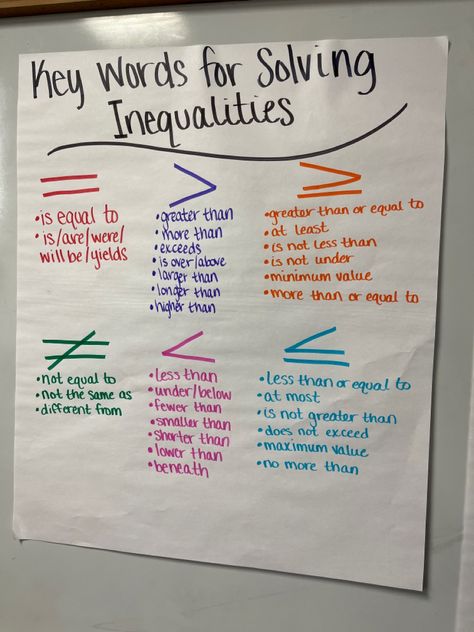 Key Words for Solving
Inequalities
=
• is equal to
• is/are/were/
will be/yields
>
• greater than
• more than
• exceeds
• is over/above
• larger than
• longer than
• higher than
≥
• greater than or equal to
• at least
• is not less than
• is not under
• minimum value
• more than or equal to
≠
• not equal to
• not the same as
• different from
<
• less than
• under/below
• fewer than
• smaller than
• shorter than
• lower than
• beneath
≤
• less than or equal to
• at most
• is not greater than
• does not exceed
• maximum value
• no more than